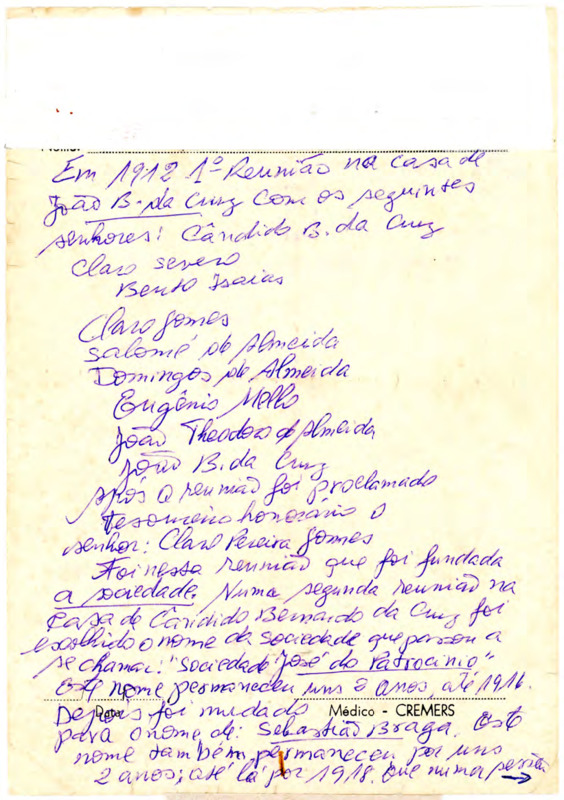 Em 1912 1º Reunião na casa de
João B. da Cruz com os seguintes
senhores: Cândido B. da Cruz
Claro severo
Bento Isaias
Claro Gomes
Salomé de Almeida
Domingos de Almeida
Eugênio Mello
João Theodoro de Almeida
João B. da Cruz
Após a reunião foi proclamado
Tesoureiro honorário o
senhor: Claro Pereira Gomes
Foi nessa reunião que foi fundada
a sociedade. Numa segunda reunião na
casa de Cândido Bernardo da Cruz foi
escolhido o nome da sociedade que passou a
se chamar: "Sociedade José do Patrocinio"
Este nome permaneceu uns 2 anos, até 1916.
Data Médico - CREMERS
Depois foi mudado
para o nome de: Sebastião Braga. Este
nome também permaneceu por uns
2 anos; até lá por 1918. Que numa →